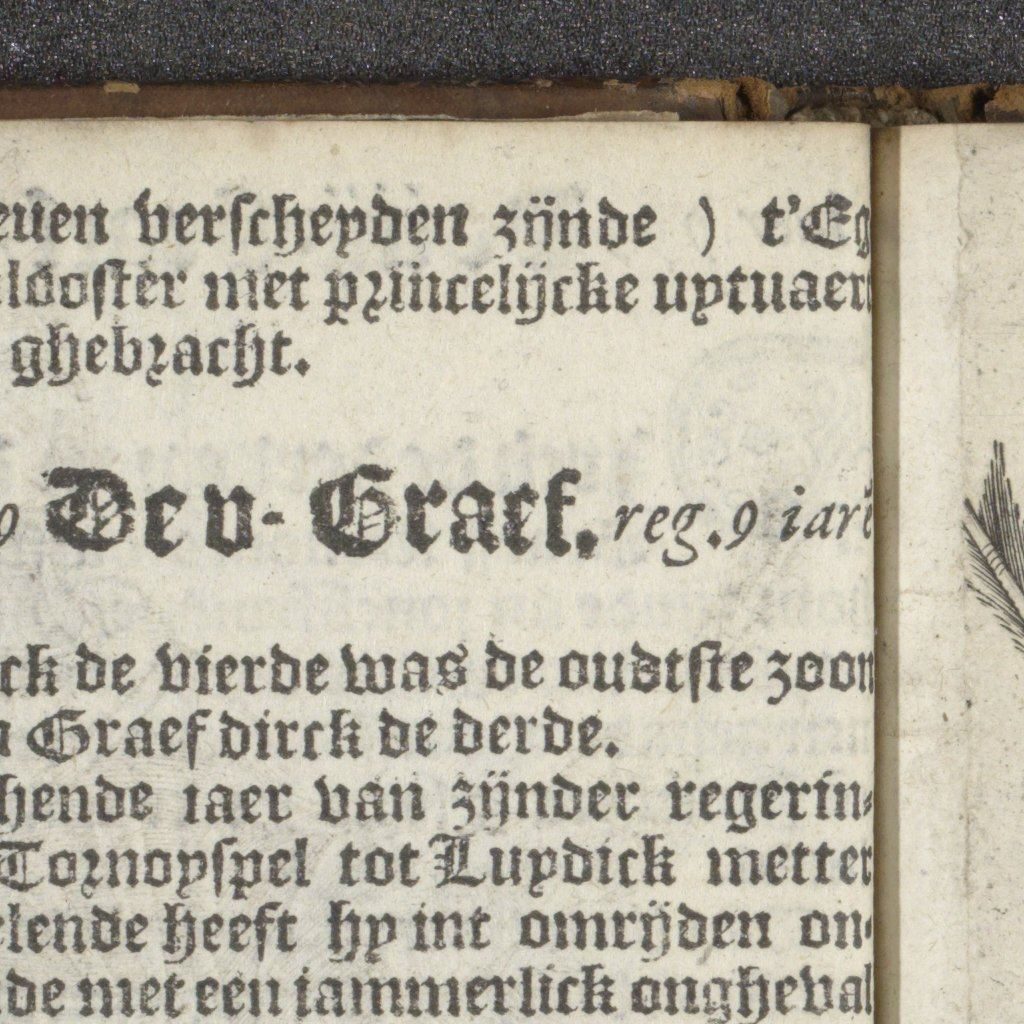 euen verscheyden zijnde ) t'Eg
clooster met princelijcke uytuaert
ghebracht.
9 De v. Graef. reg. 9 iarē
ck de vierde was de oudtste zoon
n Graef dirck de derde.
hende iaer van zijnder regerin-
Tornoyspel tot Luydick metter
elende heeft hy int omrijden on-
de met een iammerlick ongheval